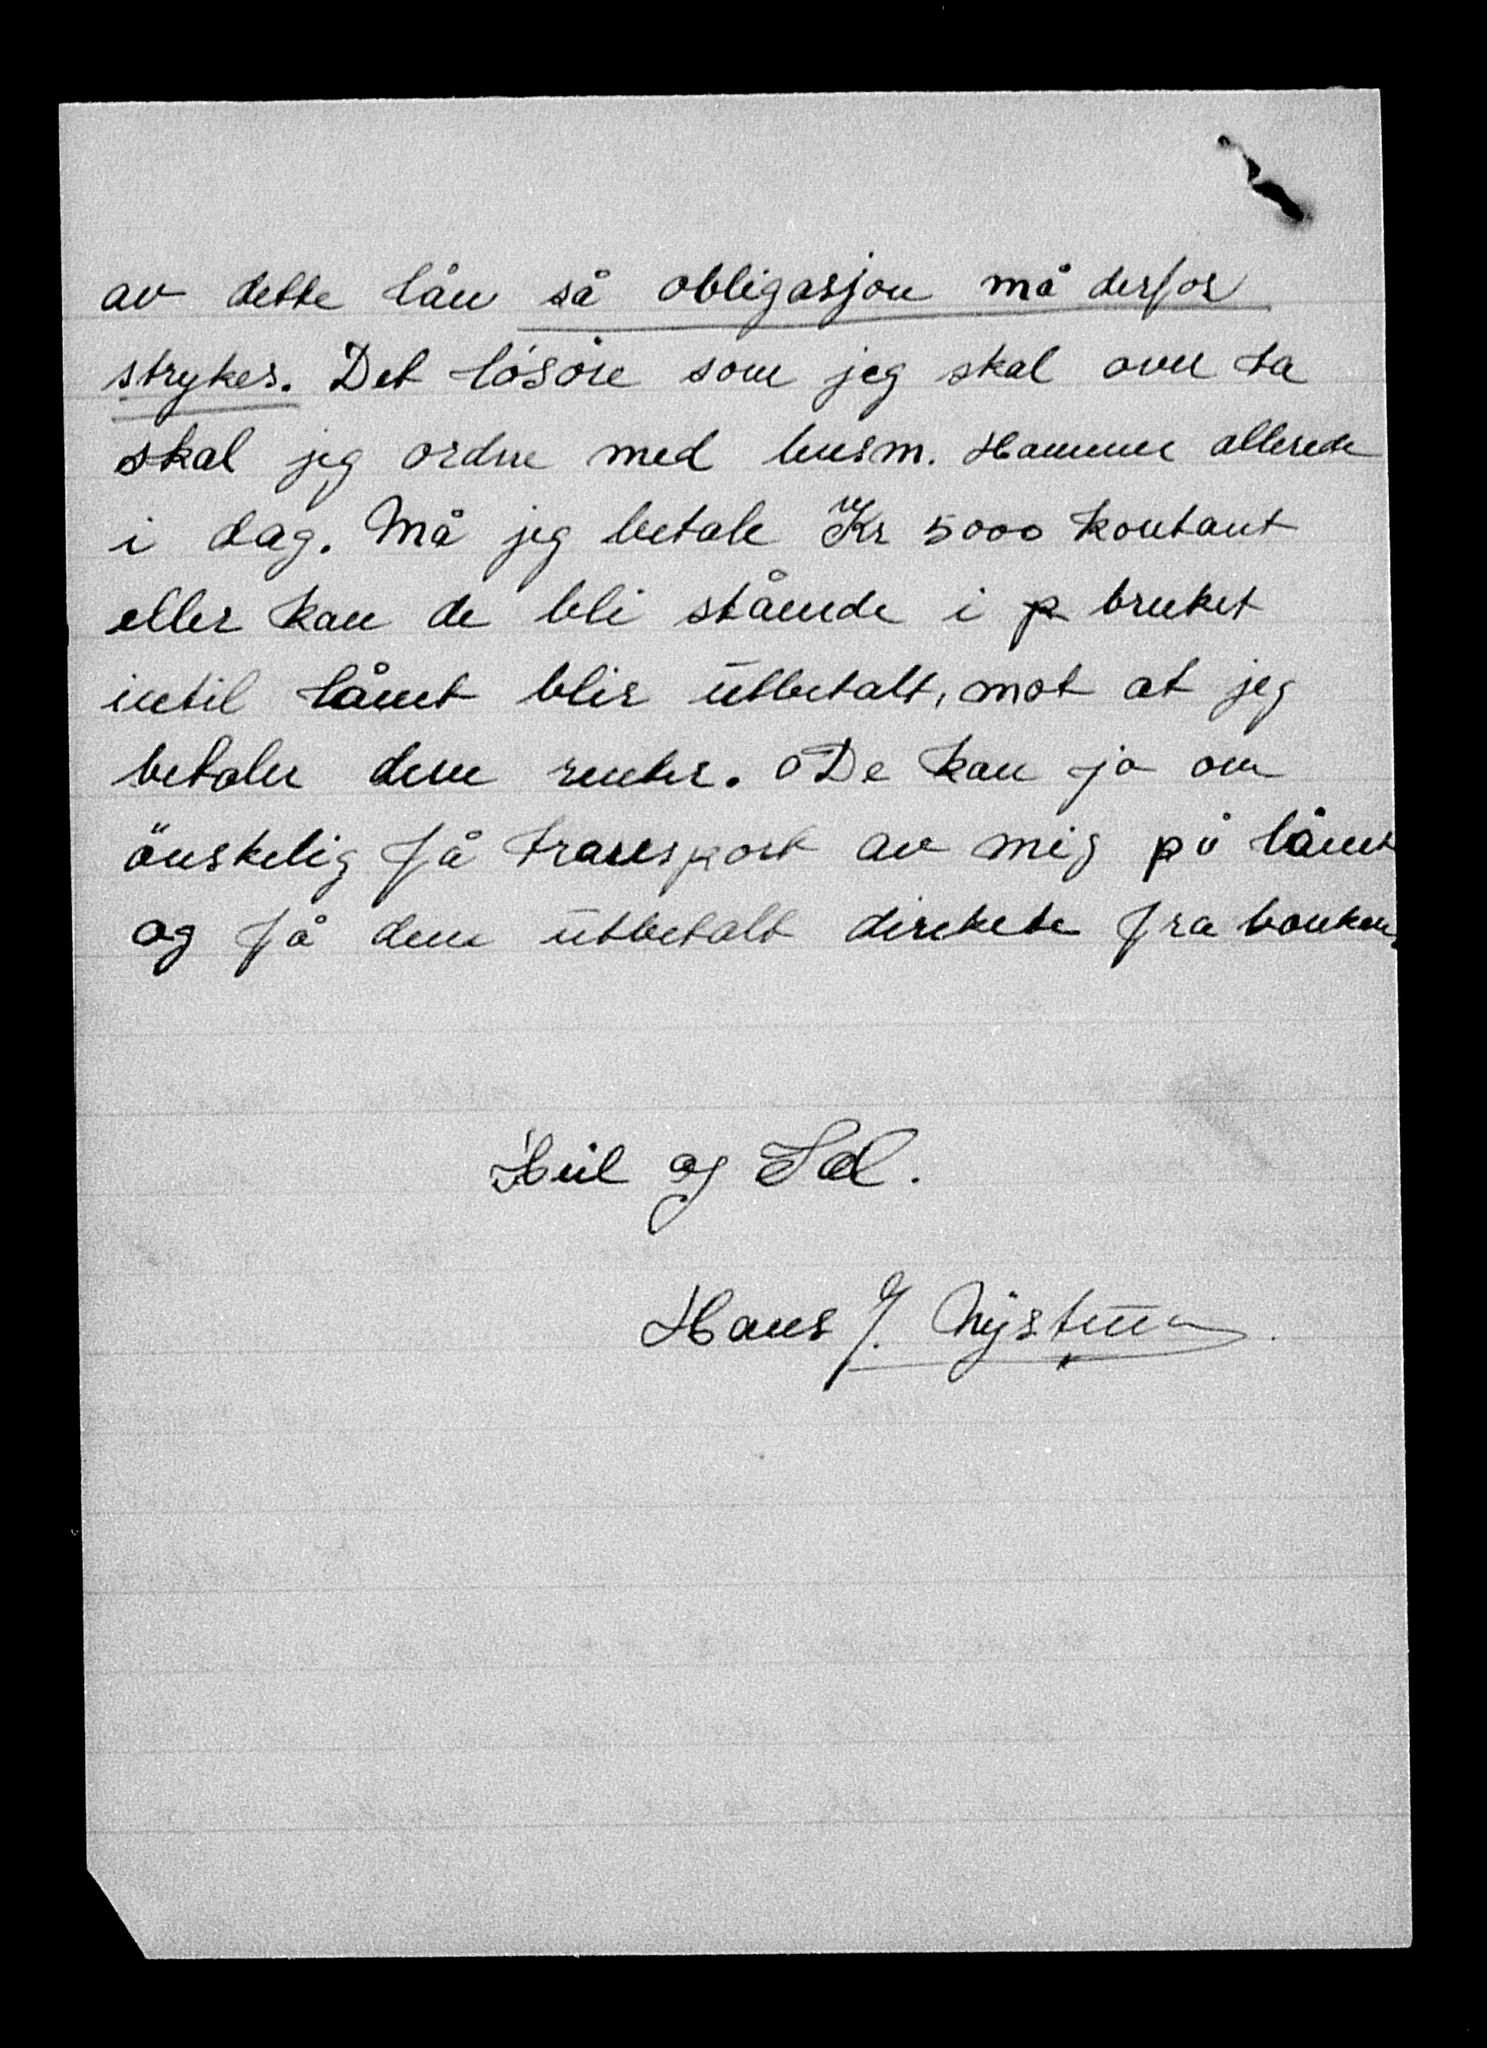 av dette lån så obligasjon må derfor
strykes. Det lösöre som jeg skal over ta
skal jeg ordne med lensm. Hammer allerede
i dag. Må jeg betale Kr 5000 kontant
eller kan de bli stående i bruket
intil lånet blir utbetalt, mot at jeg
betaler dem renter. De kan jo om
önskelig få transport av mig på lånet
og få dem utbetalt direkte fra banken.
Heil og Sæl.
Hans J. Nystuen